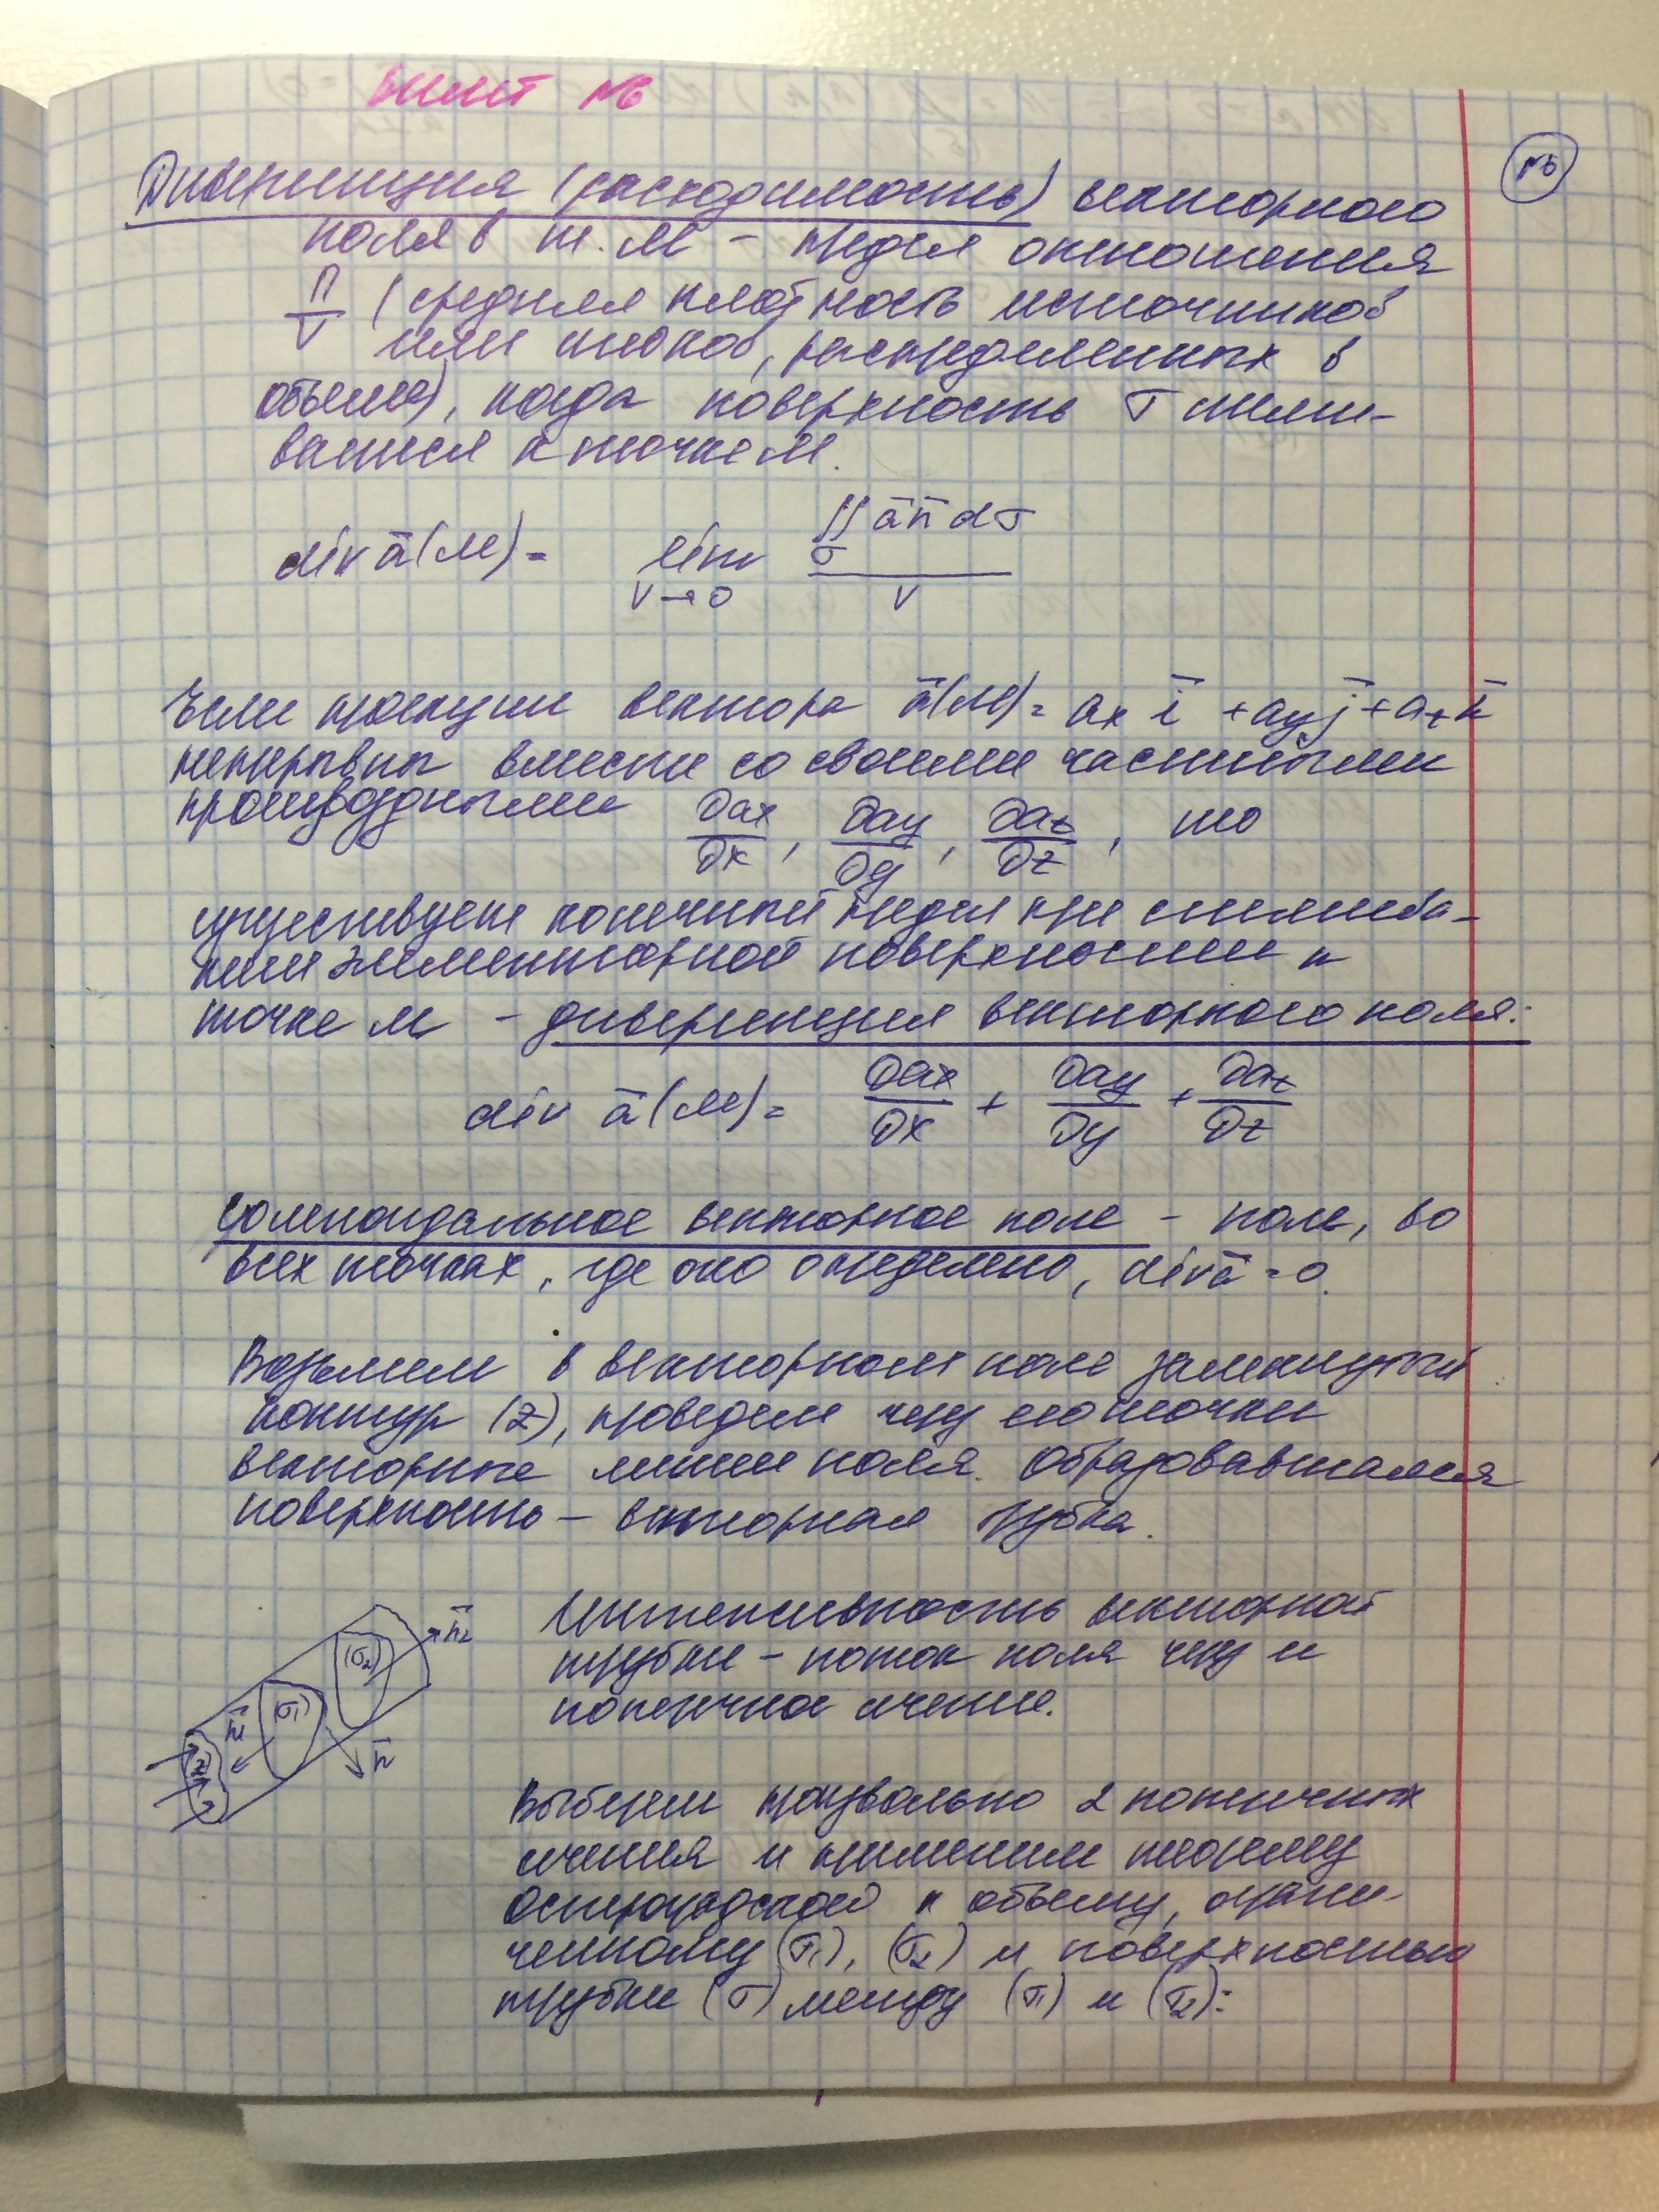 Билет №6
№6
Дивергенция (расходимость) векторного
поля в т. М – предел отношения
П/V (средняя плотность источников
или стоков, распределенных в
объеме), когда поверхность σ стяги-
вается к точке М.
div ā(М) = lim V→0 ∬σ ā n̄ dσ / V
Если проекции вектора ā(М) = ax ī + ay j̄ + az k̄
непрерывны вместе со своими частными
производными ∂ax/∂x, ∂ay/∂y, ∂az/∂z, то
существует конечный предел при стягива-
нии элементарной поверхности к
точке М – дивергенция векторного поля:
div ā(М) = ∂ax/∂x + ∂ay/∂y + ∂az/∂z
Соленоидальное векторное поле – поле, во
всех точках, где оно определено, div ā = 0.
Возьмем в векторном поле замкнутый
контур (Z), проведем через его точки
векторные линии поля. Образовавшаяся
поверхность – векторная трубка.
Интенсивность векторной
трубки – поток поля через её
поперечное сечение.
n̄2
(σ2)
(σ1)
n̄1
(Z)
n̄
Выберем произвольно 2 поперечных
сечения и применим теорему
Остроградского к объему, ограни-
ченному (σ1), (σ2) и поверхностью
трубки (σ) между (σ1) и (σ2):